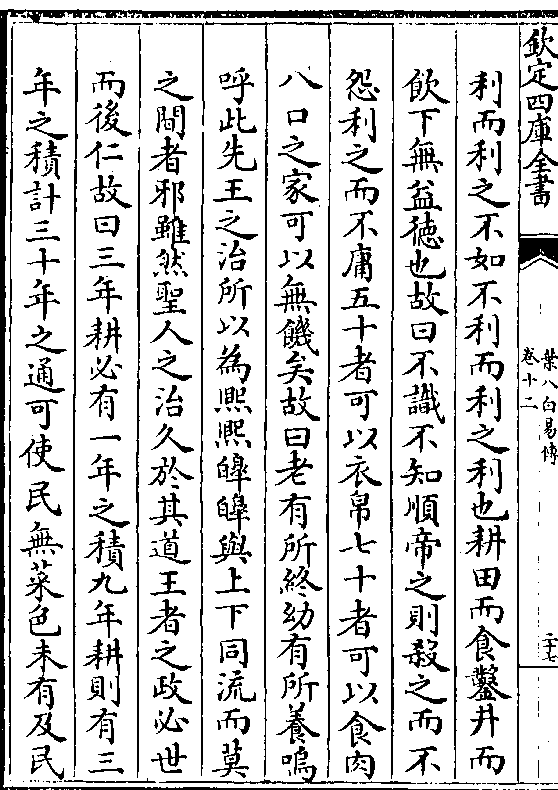 欽定四庫全書
葉八白易傳
卷十二
三十七
利而利之不如不利而利之利也耕田而食鑿井而
飲下無益徳也故曰不識不知順帝之則殺之而不
怨利之而不庸五十者可以衣帛七十者可以食肉
八口之家可以無饑矣故曰老有所終幼有所養嗚
呼此先王之治所以為熈熈皥皥與上下同流而莫
之間者邪雖然聖人之治久於其道王者之政必世
而後仁故曰三年耕必有一年之積九年耕則有三
年之積計三十年之通可使民無菜色未有及民